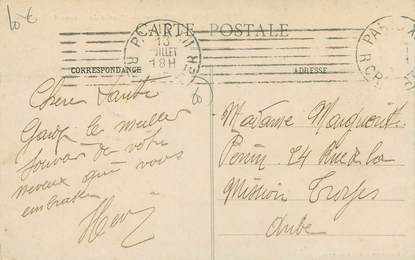 10 €
CARTE POSTALE
13
JUILLET
18H
CORRESPONDANCE
ADRESSE
Chère Tante
Garde le meilleur
souvenir de votre
neveu qui vous
embrasse
Henri
Madame Marguerite
24 Rue de la
Mission Troyes
Aube